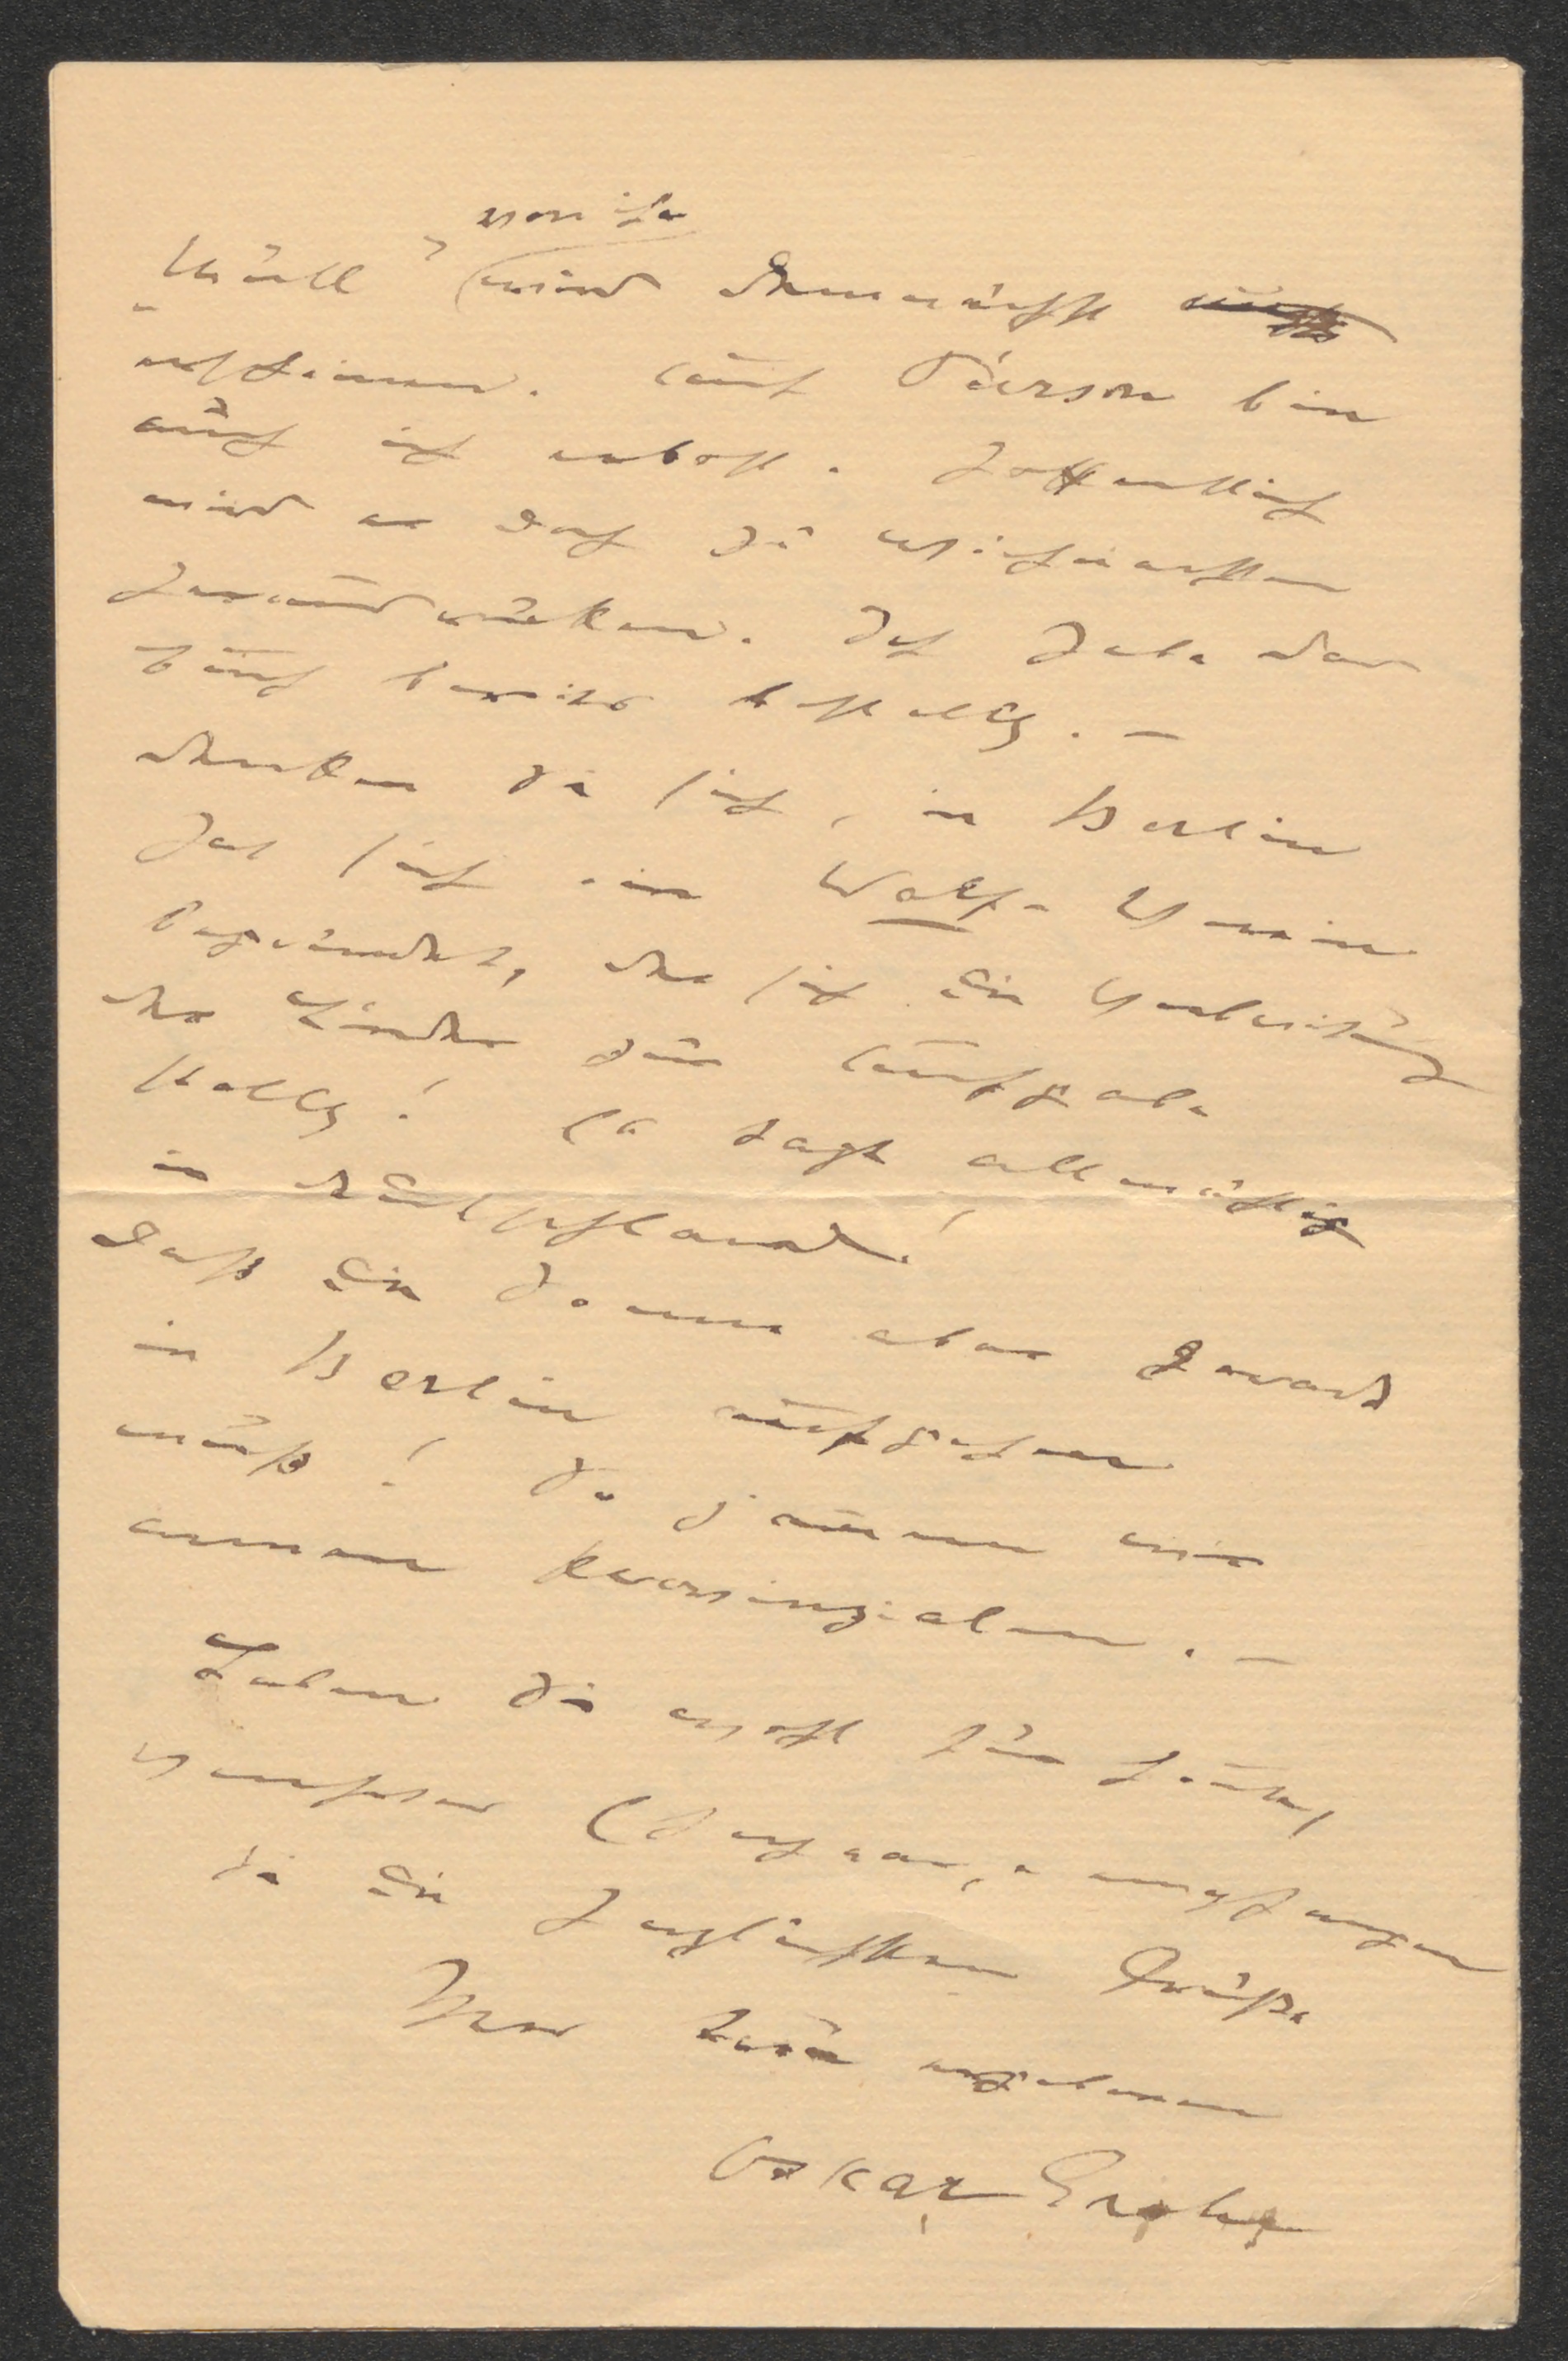 von ihr
wird demnächst
erscheinen. Auf Pierson bin
auch ich erbost. Hoffentlich
wird er doch zu Weihnachten
herausrücken. Ich habe das
Buch bereits bestellt. –
Denken Sie sich, in Berlin
hat sich ein Wolf-Verein
begründet, der sich die Verbreitung
der Lieder zur Aufgabe
stellt! Es tagt allmählich
in Deutschland!
Daß die Sonne aber gerad
in Berlin aufgehen
muß! Zu jammern wir
armen Provinzialen. –
Leben Sie wohl für heute,
verehrter und empfangen
Sie die herzlichsten Grüße
Ihres treu ergebenen
Oskar Grohe